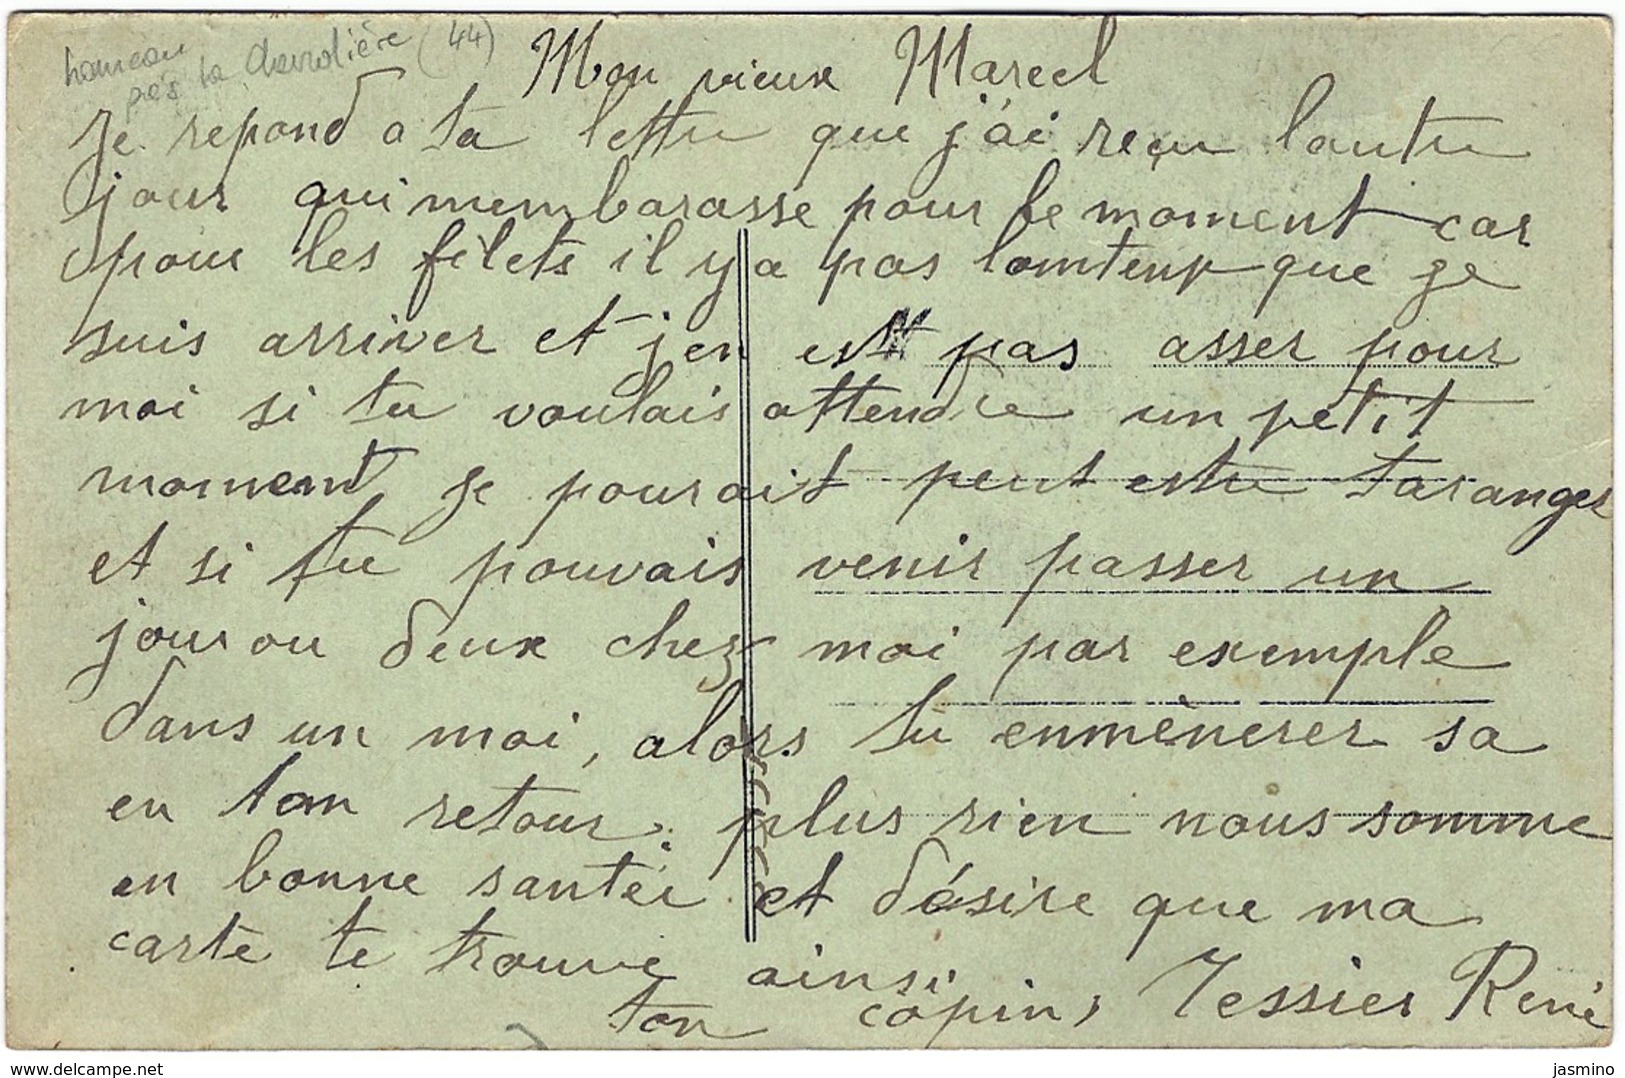 hameau
près la Chevrolière (44)
Mon vieux Marcel
Je repond a ta lettre que j'ai reçu lautre
jour qui membarasse pour le moment car
pour les filets il y a pas lomtemp que je
suis arriver et j'en est pas asser pour
moi si tu voulais attendre un petit
moment je pourait peut estre taranger
et si tu pouvais venir passer un
jour ou deux chez moi par exemple
dans un moi, alors tu enmènerer sa
en ton retour. plus rien nous somme
en bonne santer et désire que ma
carte te trouve ainsi
ton copin, Tessier René
www.delcampe.net
jasmino